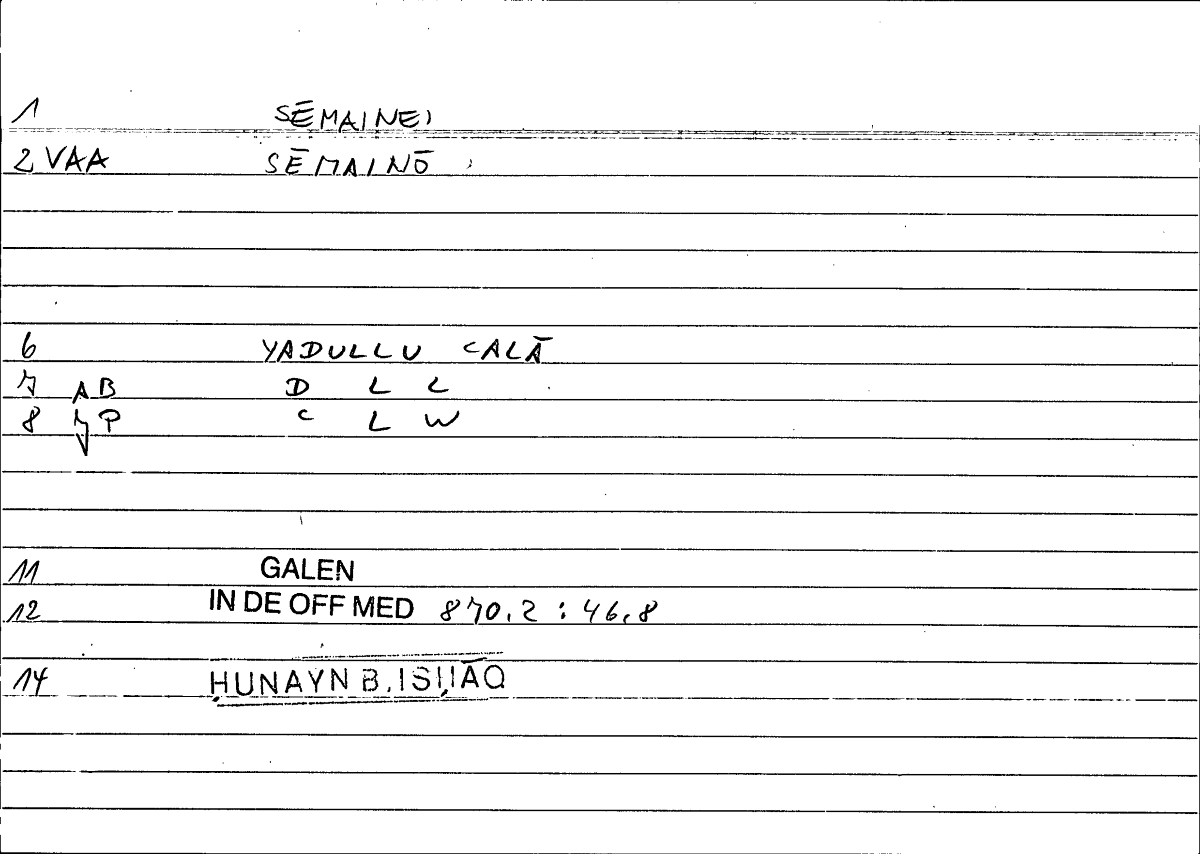 1 SĒMAINEI
2 VAA SĒMAINŌ
6 YADULLU ᶜALĀ
7 AB D L L
8 P ᶜ L W
11 GALEN
12 IN DE OFF MED 870.2 : 46.8
14 ḤUNAYN B. ISḤĀQ